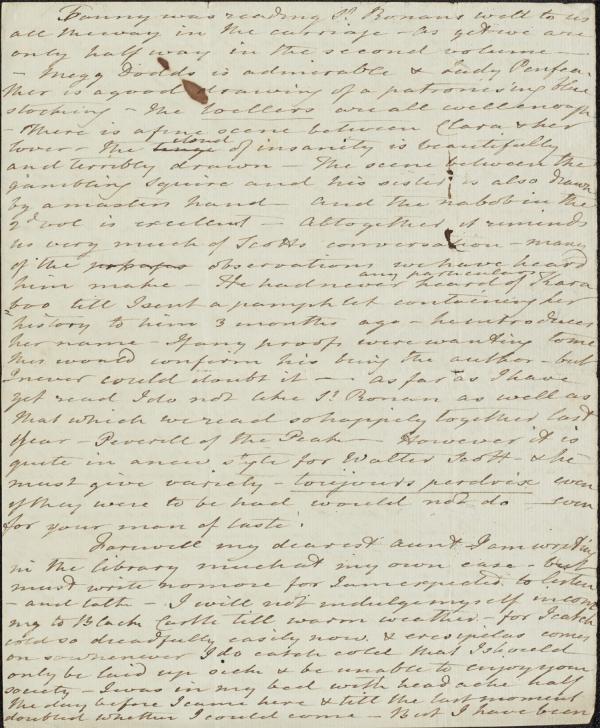 Fanny was reading St. Ronans well to us
all the way in the carriage – as yet we are
only half way in the second volume –
– Megg Dodds is admirable & Lady Penfea
ther is a good drawing of a patronising blue
stocking – The wellers are all well enough
– There is a fine scene between Clara & her
lover – The tinge cloud of insanity is beautifully
and terribly drawn – The scene between the
gambling Squire and his sister is also drawn
by a masters hand – and the nabob in the
2d vol is excellent – Altogether it reminds
us very much of Scotts conversation – many
of the observations we have heard
him make – He had never heard any particulars of Kara
boo till I sent a pamphlet containing her
history to him 3 months ago – he introduces
her name – If any proofs were wanting to me
this would confirm his being the author – but
I never could doubt it – as far as I have
yet read I do not like St. Ronan as well as
that which we read so happily together last
year – Peverill of the Peak – However it is
quite in a new style for Walter Scott & he
must give variety – toujours perdrix even
if they were to be had would not do – even
for your man of taste.
Farewell my dearest aunt I am writing
in the library much at my own ease – but
must write no more for I am expected to listen
– and talk – I will not indulge myself in com
ing to Black Castle till warm weather – for I catch
cold so dreadfully easily now & eresipelas comes
on so whenever I do catch cold that I should
only be laid up sick & be unable to enjoy your
society – I was in my bed with headache half
the day before I came here & till the last moment
doubted whether I could come – But I have been